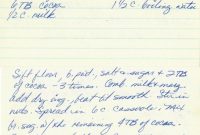 6 TB cocoa 1 1/2 C. boiling water
1/2 C. milk
Sift flour, b. pwd., salt & sugar & 2 TB
of cocoa - 3 times. Comb. milk & marg.
add dry ing., beat til smooth. Stir in
nuts. Spread in 6 C casserole. Mix
br. sug. w/ the remaining 4 TB of cocoa.